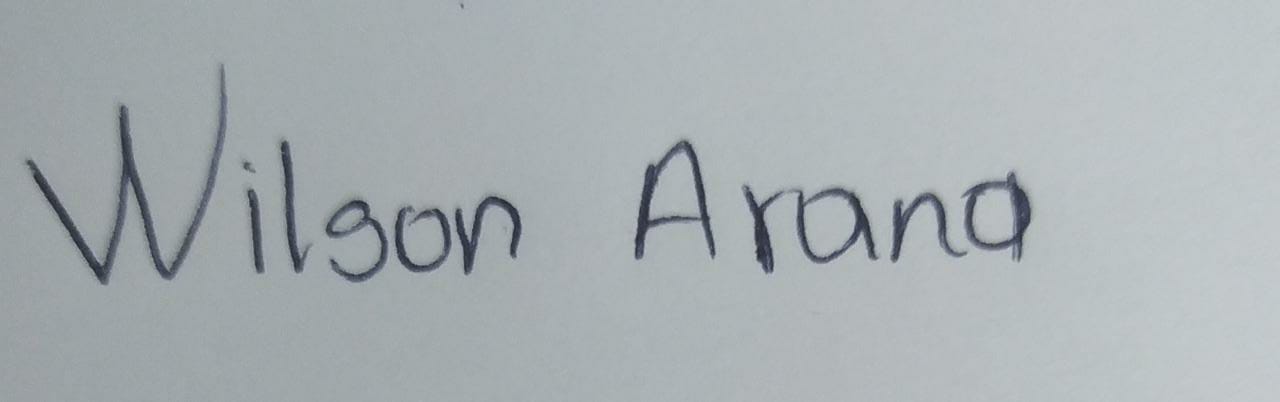 Wilson Arana